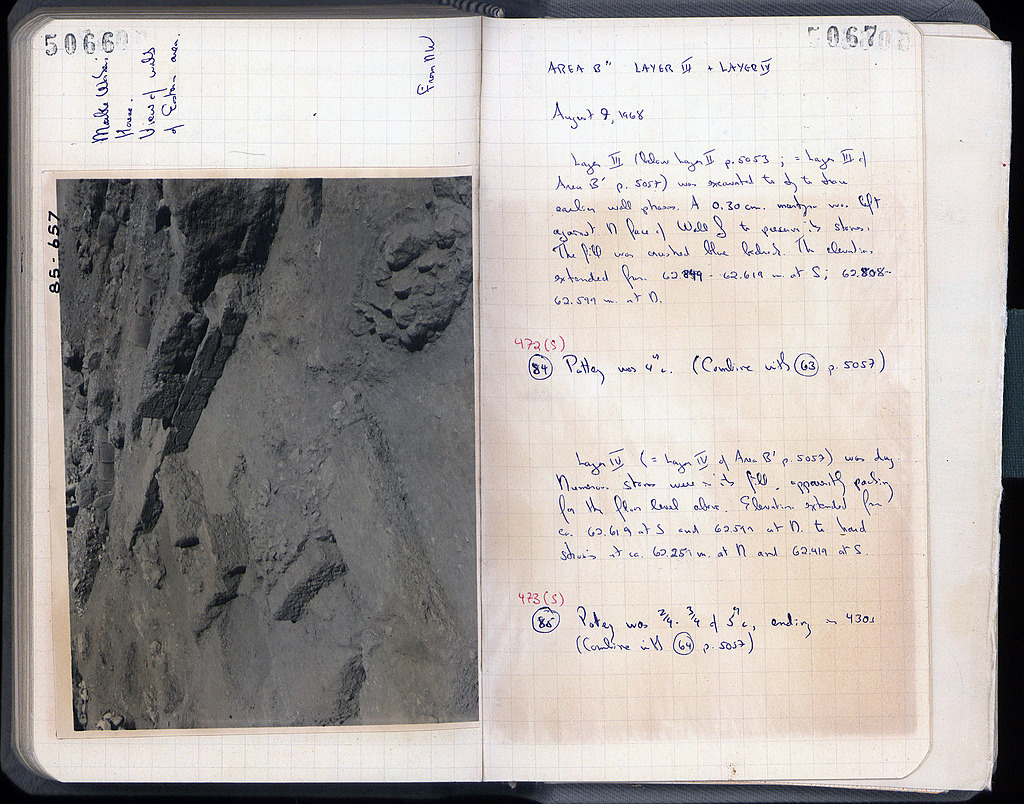 5066
Marble Workers
House.
View of walls
of Eastern area.
From NW
85-657
5067
AREA B" LAYER III + LAYER IV
August 9, 1968
Layer III (below Layer II p. 5053 ; = Layer III of
Area B' p. 5057) was excavated to try to show
earlier wall phases. A 0.30 cm. martyra was left
against N face of Wall to preserve its stones.
The fill was crushed blue bedrock. The elevations
extended from 62.849 - 62.619 m. at S; 62.808-
62.599 m. at N.
472 (S)
84 Pottery was 4th c. (Combine with 63 p. 5057)
Layer IV (= Layer IV of Area B' p. 5057) was dug.
Numerous stones were in its fill, apparently packing
for the floor level above. Elevation extended from
ca. 62.619 at S and 62.599 at N. to hard
at ca. 62.259 m. at N and 62.419 at S.
473 (S)
85 Pottery was 2/4 - 3/4 of 5th c, ending in 430s
(Combine with 64 p. 5057)